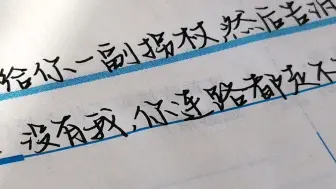 给你一副拐杖,然后告诉
没有我,你连路都走不